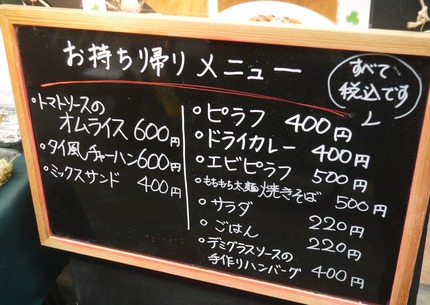 お持ち帰りメニュー
すべて
税込です
・トマトソースの
オムライス 600円
・タイ風チャーハン 600円
・ミックスサンド 400円
・ピラフ 400円
・ドライカレー 400円
・エビピラフ 500円
・もちもち太麺焼きそば 500円
・サラダ 220円
・ごはん 220円
・デミグラスソースの
手作りハンバーグ 400円